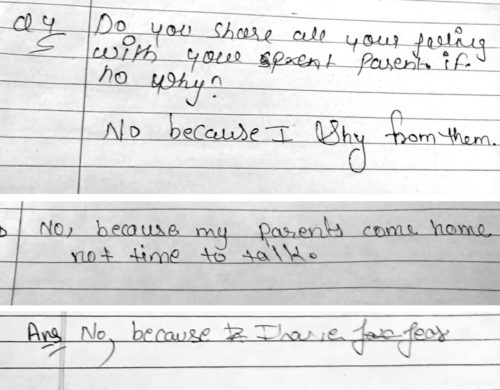 Q4 Do you share all your feeling
with your parent if
no why?
No because I Shy from them.
No, because my parents come home
not time to talk.
Ans No, because I have fear